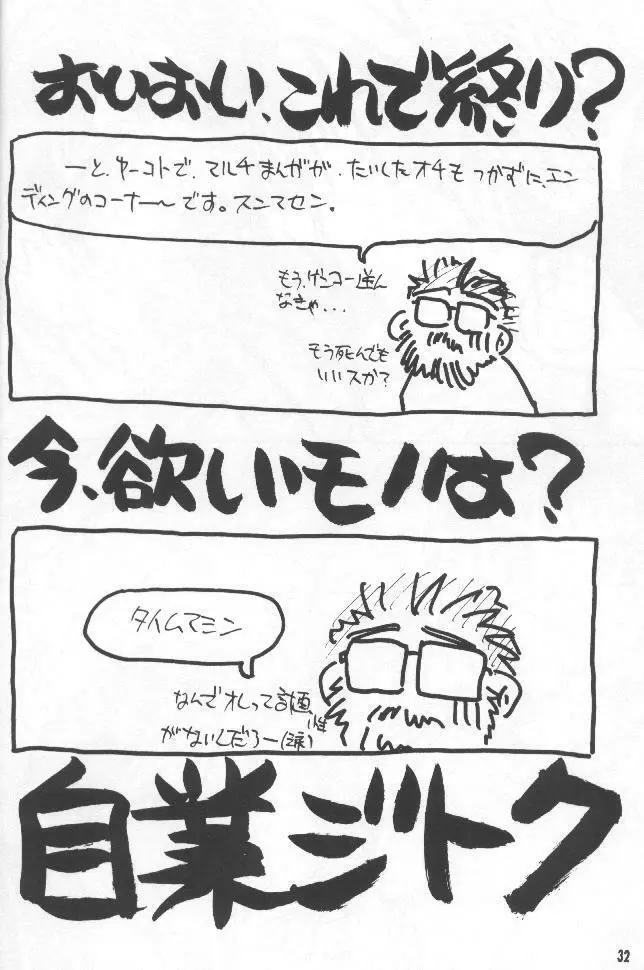 おいおい、これで終り?
ーと、ゆーコトで、マルチまんがが、たいしたオチもつかずに、エン
ディングのコーナ〜です。スンマセン。
もう、ゲンコー進ん
なきゃ...
もう死んでも
いいスか?
今、欲しいモノは?
タイムマシン
なんでオレって計画性
がないんだろー(涙)
自業ジトク
32